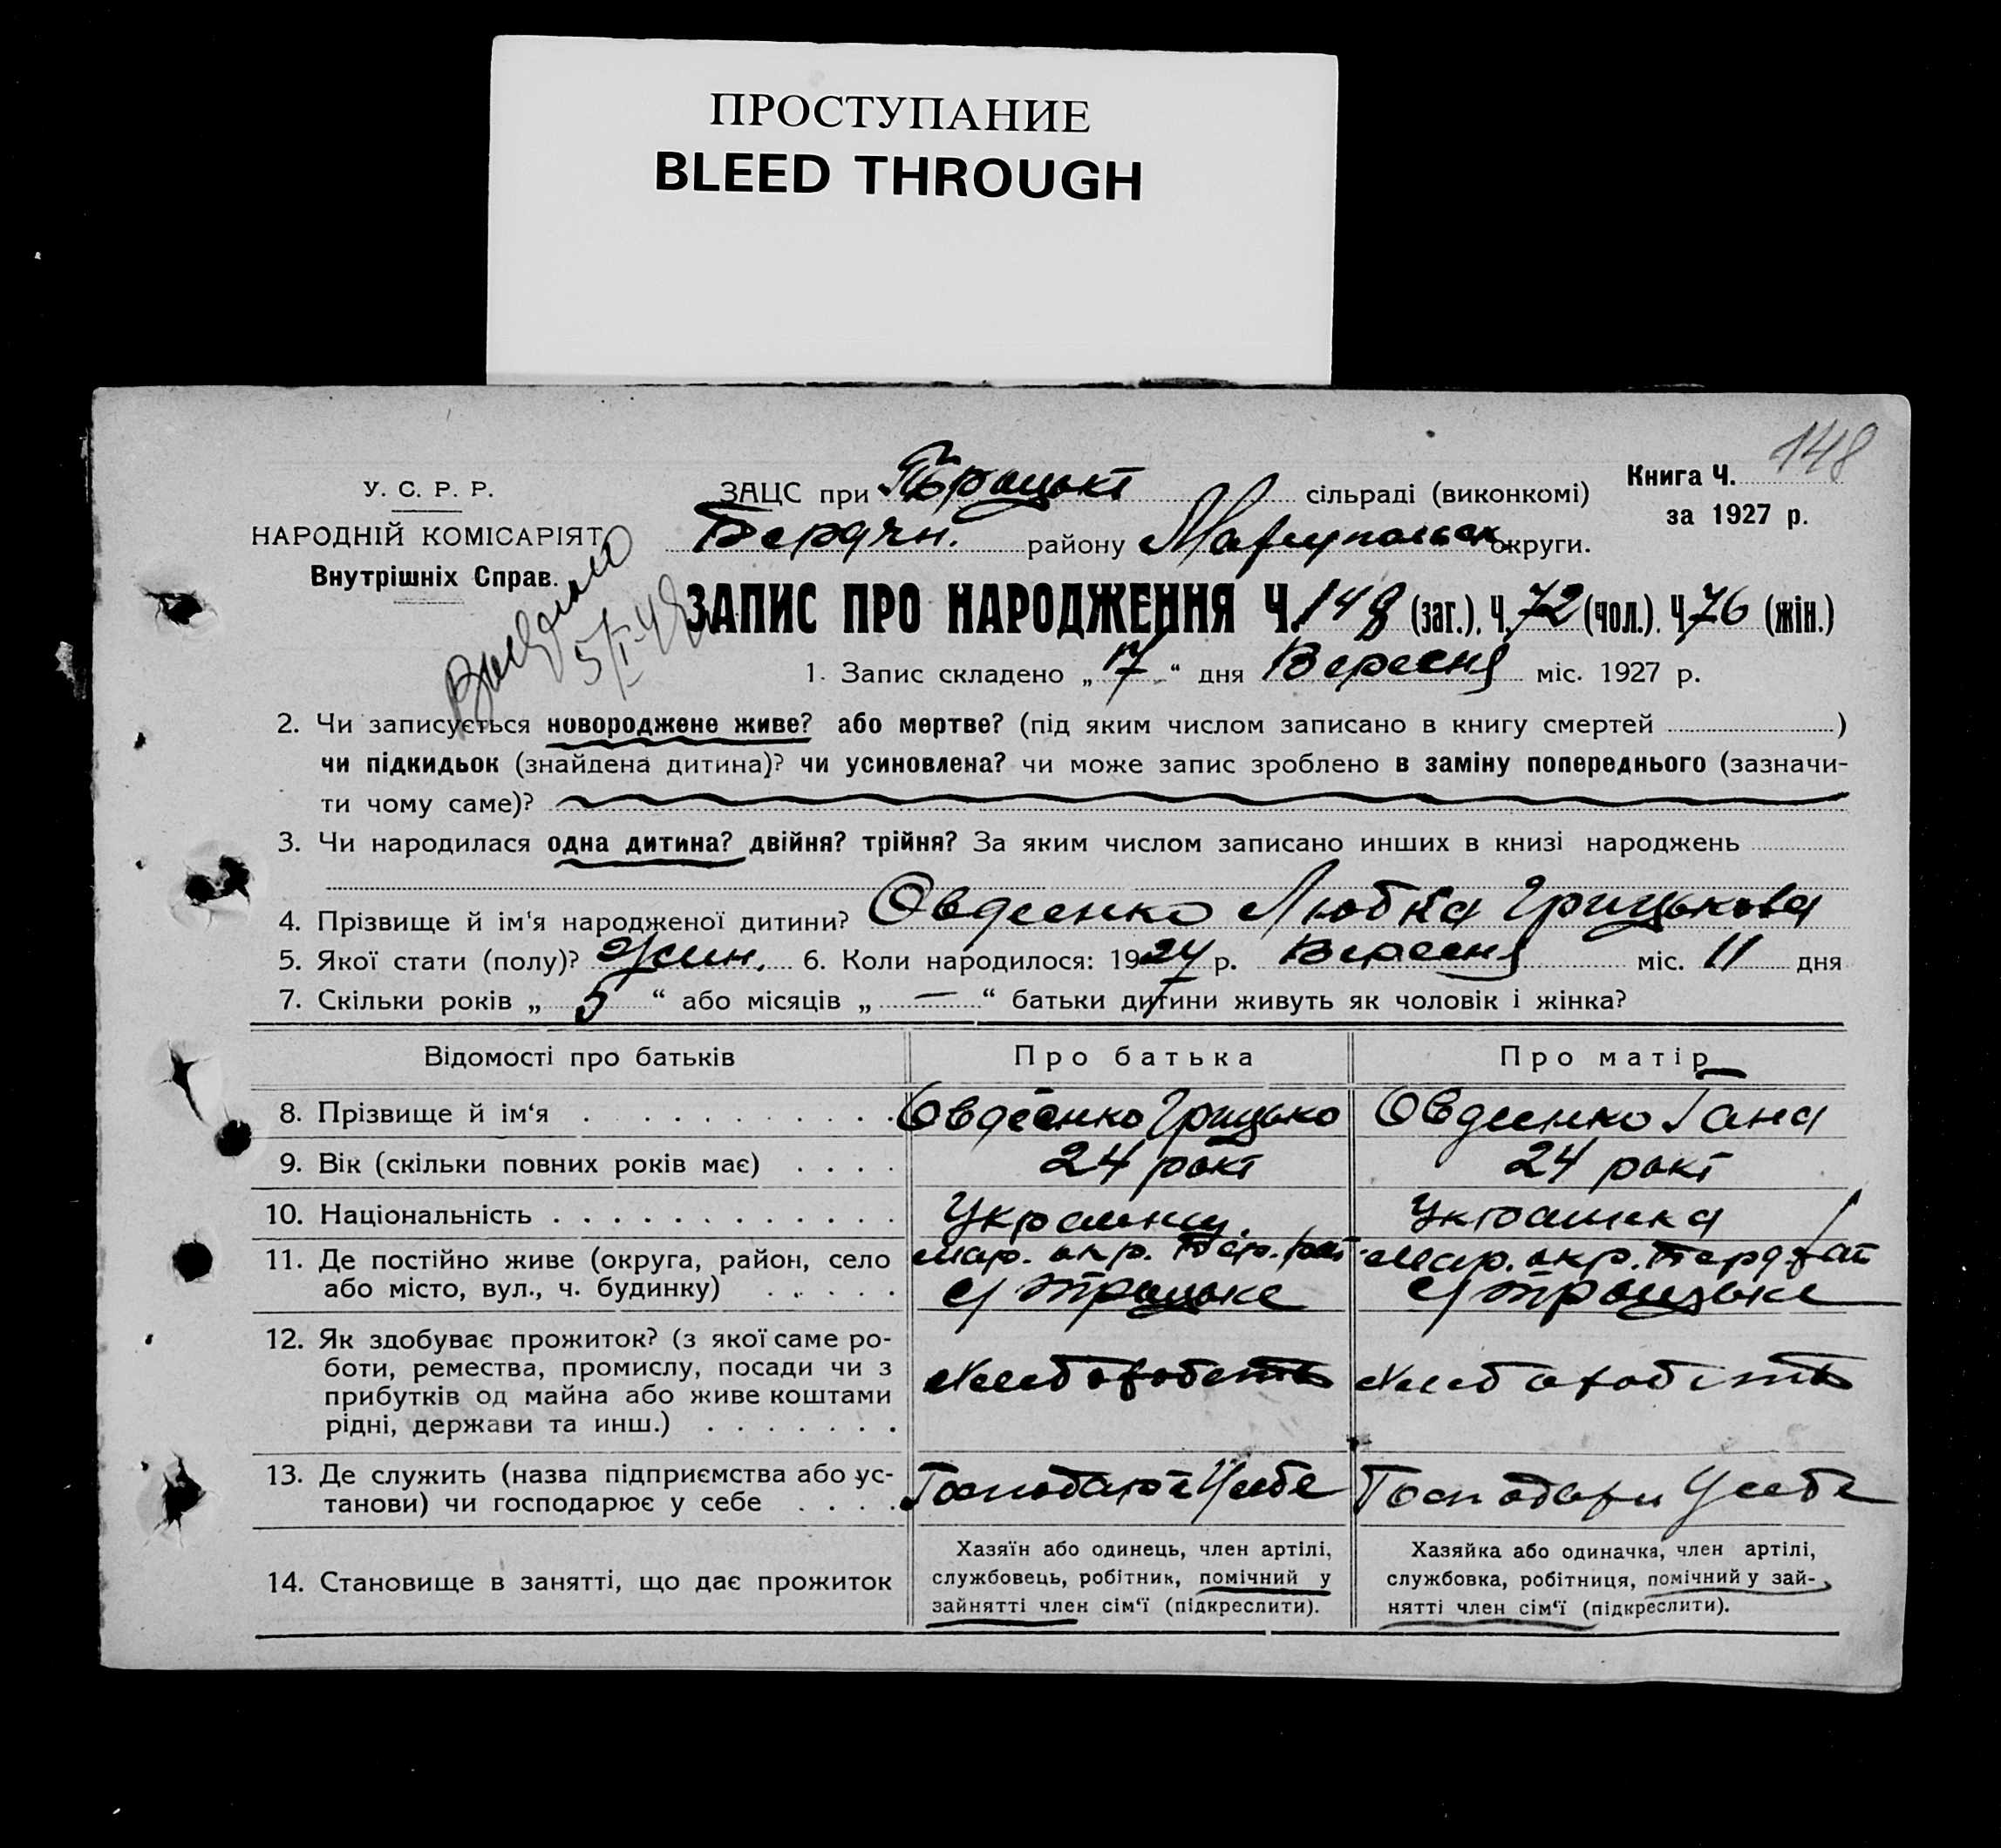 ПРОСТУПАНИЕ
BLEED THROUGH
148
У. С. Р. Р.
НАРОДНІЙ КОМІСАРІЯТ
Внутрішніх Справ.
ЗАЦС при Троцькі сільраді (виконкомі)
Бердян. району Маріупольськ округи.
Книга Ч.
за 1927 р.
5/I-48
ЗАПИС ПРО НАРОДЖЕННЯ Ч. 148 (заг.). Ч. 72 (чол.). Ч. 76 (жін.)
1. Запис складено „17“ дня Вересня міс. 1927 р.
2. Чи записується новороджене живе? або мертве? (під яким числом записано в книгу смертей )
чи підкидьок (знайдена дитина)? чи усиновлена? чи може запис зроблено в заміну попереднього (зазначи-
ти чому саме)?
3. Чи народилася одна дитина? двійня? трійня? За яким числом записано инших в книзі народжень
4. Прізвище й ім‘я народженої дитини? Овдеенко Любка Грицькова
5. Якої стати (полу)? Жин. 6. Коли народилося: 1927 р. Вересня міс. 11 дня
7. Скільки років „ 5 “ або місяців „ — “ батьки дитини живуть як чоловік і жінка?
Відомості про батьків Про батька Про матір
8. Прізвище й ім‘я Овдеенко Грицько Овдеенко Гана
9. Вік (скільки повних років має) 24 рокі 24 рокі
10. Національність Украинец Украинка
11. Де постійно живе (округа, район, село Мар. окр. Бер. рай Мар. окр. Берд. рай
або місто, вул., ч. будинку) с/ Троцьке с/ Троцьке
12. Як здобуває прожиток? (з якої саме ро-
боти, ремества, промислу, посади чи з
прибутків од майна або живе коштами
рідні, держави та инш.) Хлеборобств Хлеборобств
13. Де служить (назва підприємства або ус-
танови) чи господарює у себе Господарює У себе Господарю У себе
14. Становище в занятті, що дає прожиток
Хазяїн або одинець, член артілі,
службовець, робітник, помічний у
зайнятті член сім‘ї (підкреслити).
Хазяйка або одиначка, член артілі,
службовка, робітниця, помічний у зай-
нятті член сім‘ї (підкреслити).